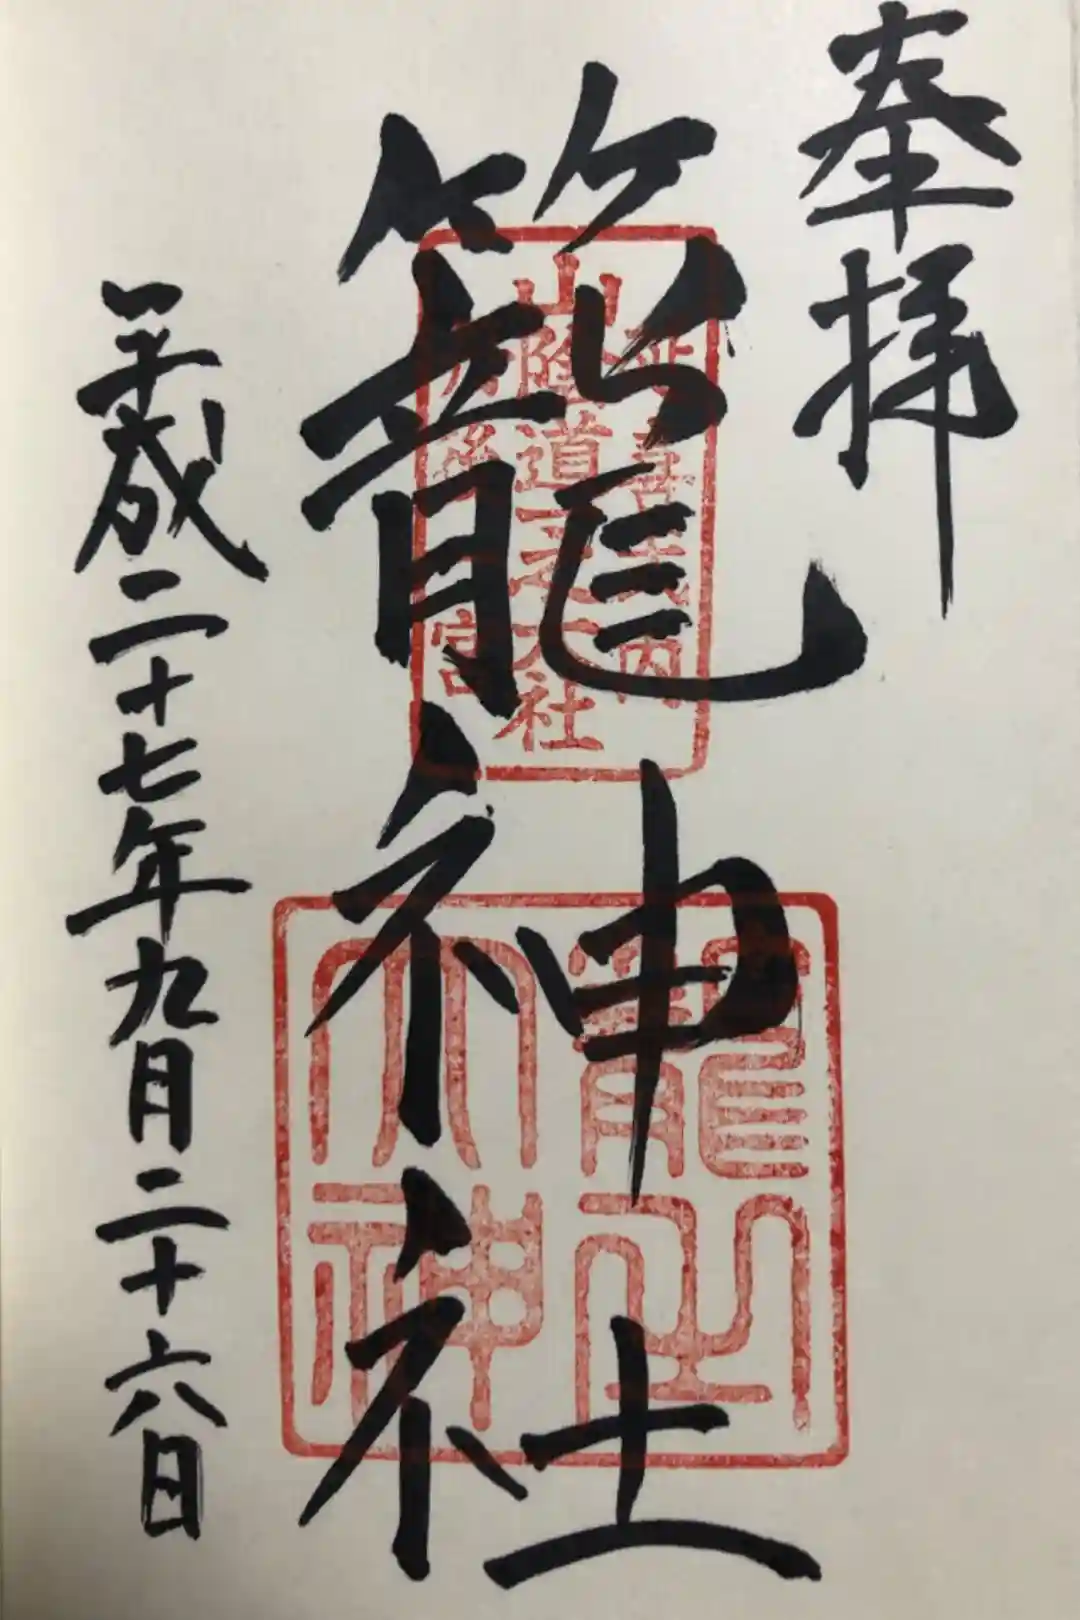 奉拝
籠神社
平成二十七年九月二十六日
延喜式内
山陰道一之大社
丹後 宮
籠之大神